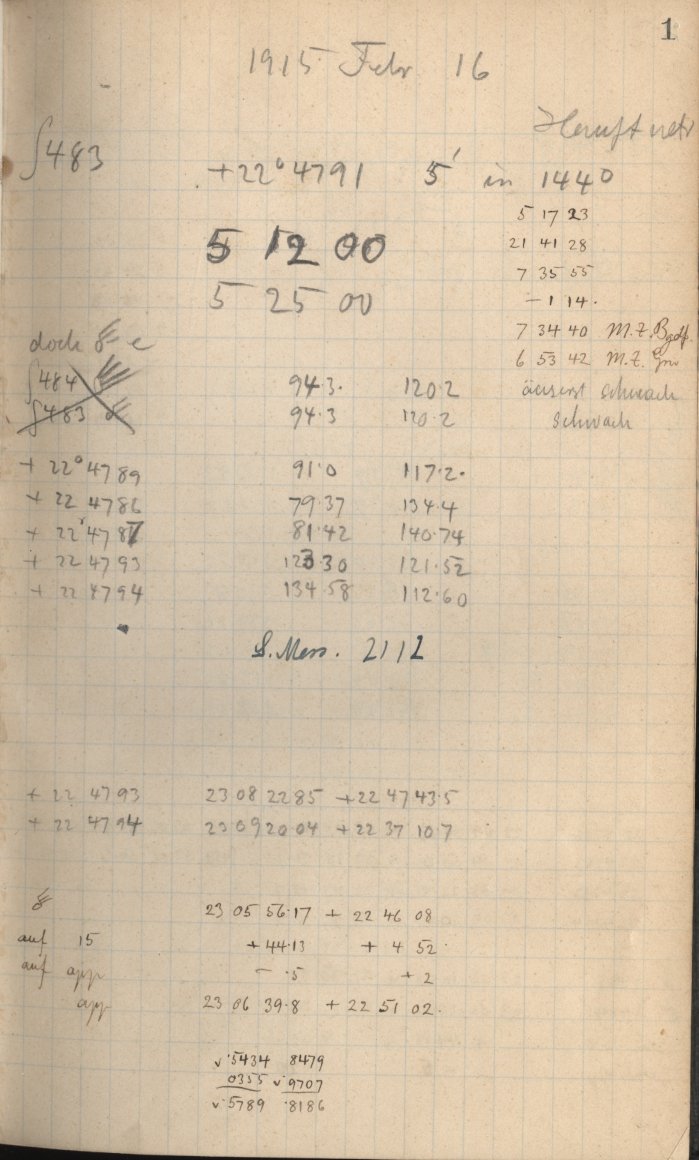 1
1915 Febr. 16
∫483 +22° 4791 5' in 1440
5 17 23
5 12 00 21 41 28
5 25 00 7 35 55
- 1 14.
7 34 40 M.Z. Bgdf.
doch 6 53 42 M.Z. Grw
∫484 94.3. 120.2 äusserst schwach
∫483 94.3 120.2 schwach
+ 22° 4789 91.0 117.2.
+ 22 4786 79.37 134.4
+ 22° 4787 81.42 140.74
+ 22 4793 123.30 121.52
+ 22 4794 134.58 112.60
S. Mess. 2112
+ 22 4793 23 08 22 85 +22 47 43.5
+ 22 4794 23 09 20 04 +22 37 10.7
23 05 56.17 + 22 46 08
auf 15 +44.13 + 4 52
auf app - .5 + 2
app 23 06 39.8 + 22 51 02.
√.5434 8479
0355 √.9707
√.5789 .8186